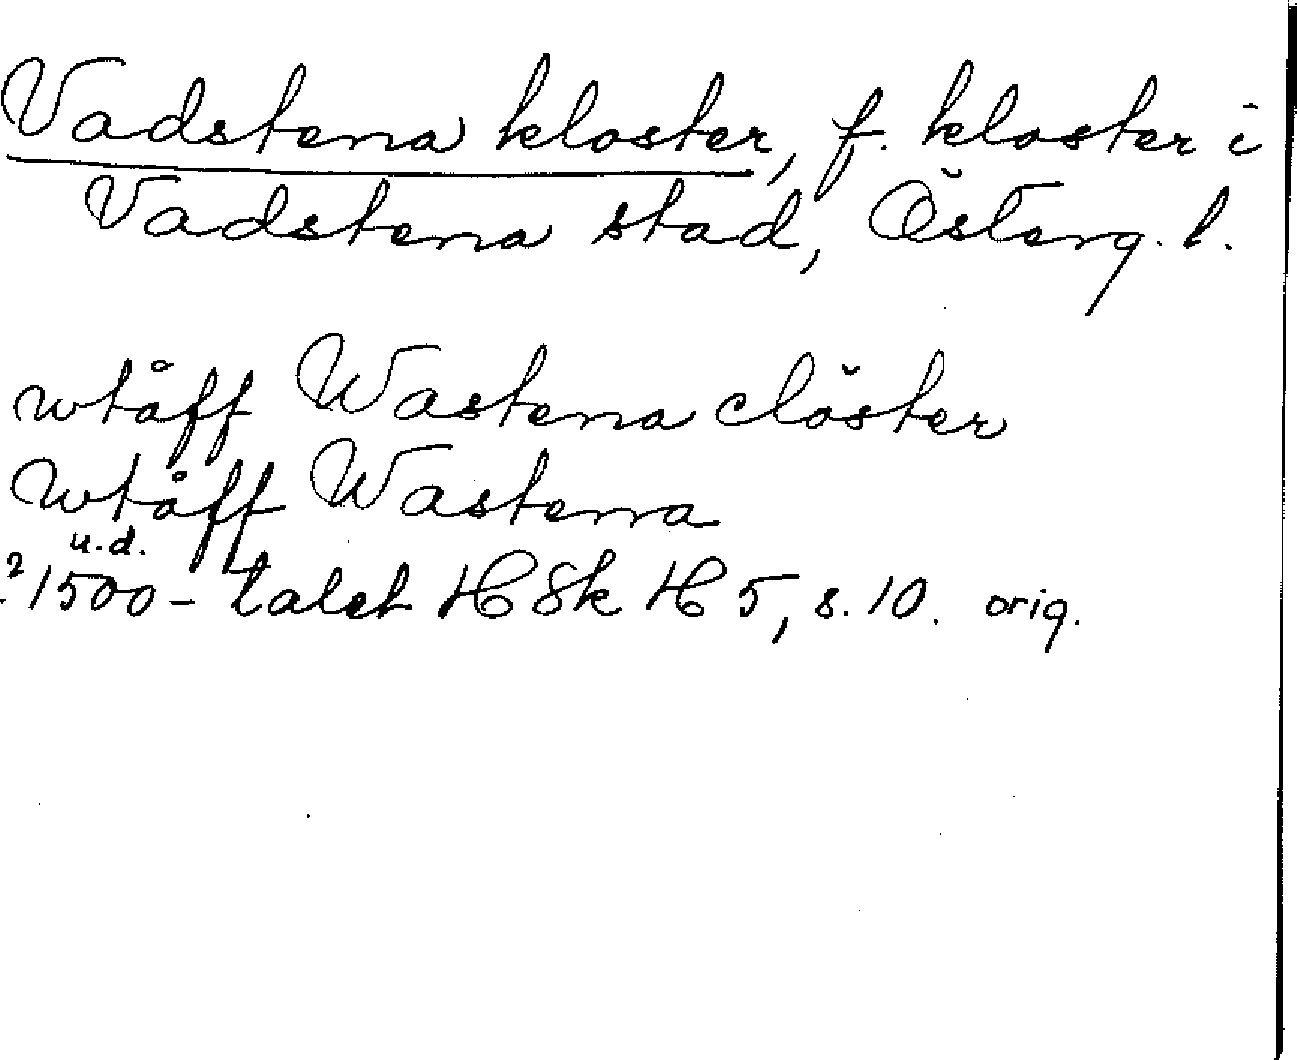 Vadstena kloster, f. kloster i
Vadstena stad, Österg. l.
wtåff Wastena clöster
Wtåff Wastena
u.d.
? 1500-talet H Sk H 5, s. 10. orig.